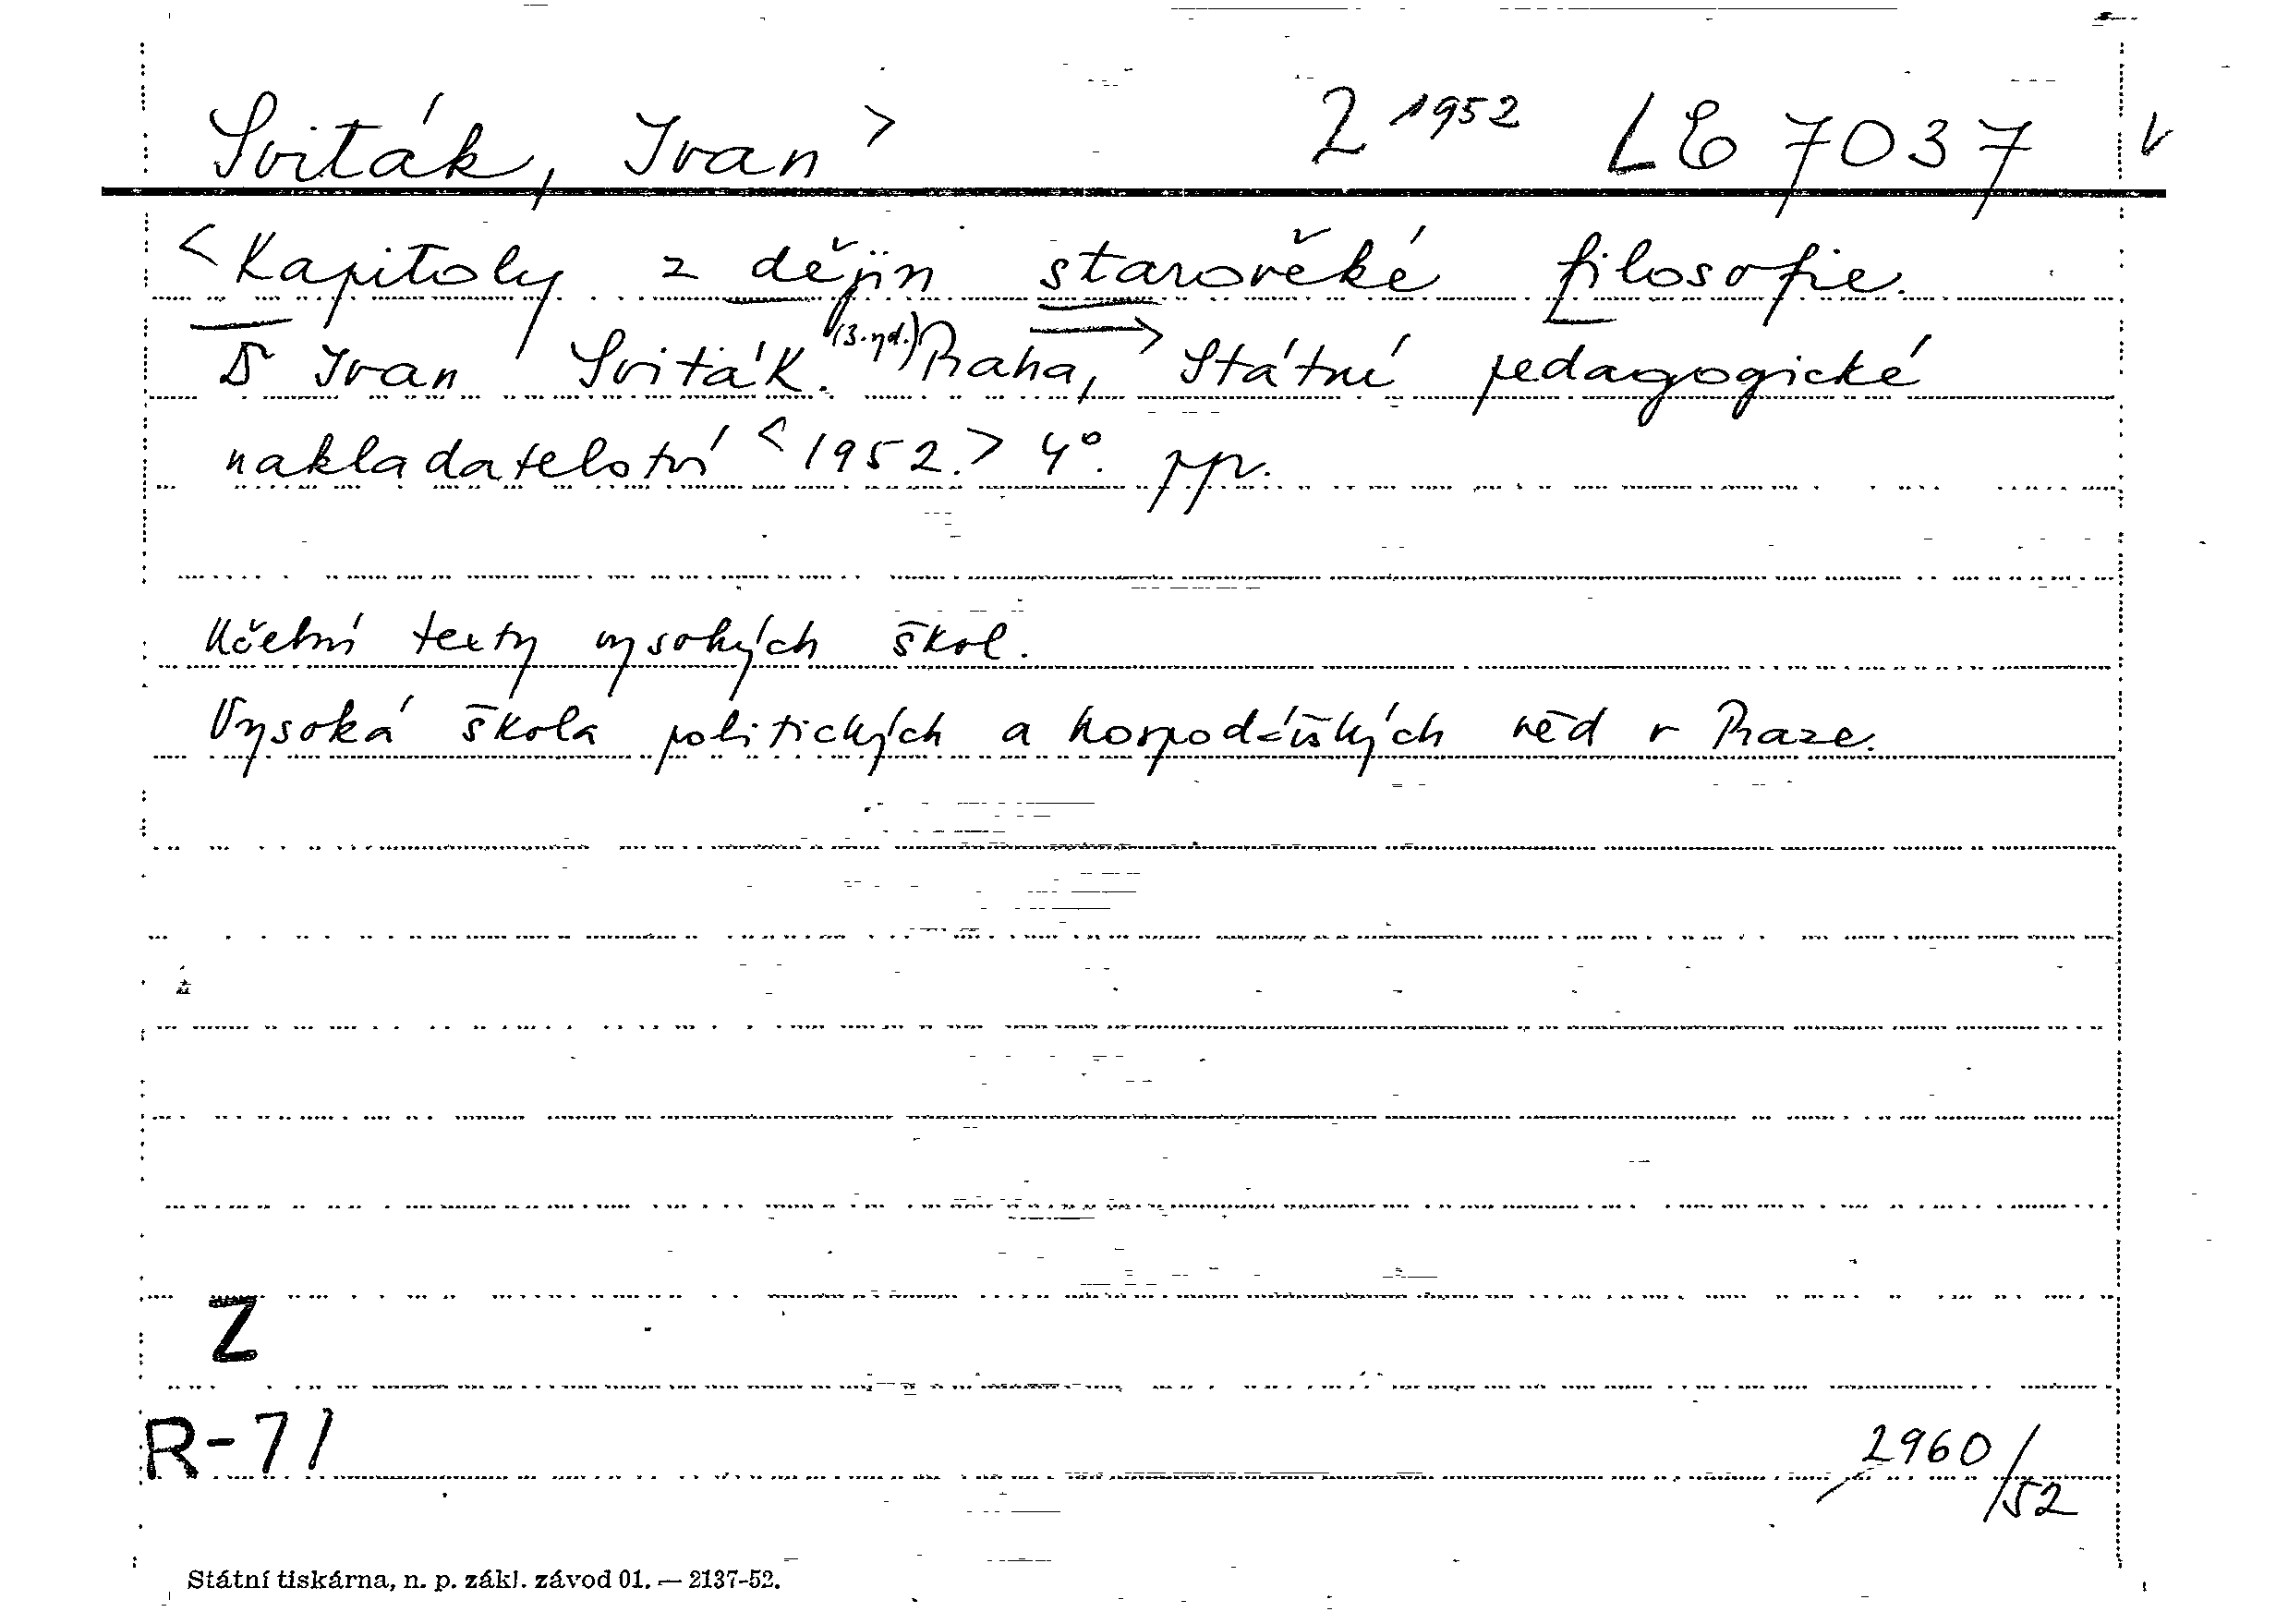 Sviták, Ivan > Z 1952 LE 7037 V
<Kapitoly z dějin starověké filosofie.
Dr Ivan Sviták. (3. vyd.) Praha, > Státní pedagogické
nakladatelství <1952.> 4°. ppr.
Učební texty vysokých škol.
Vysoká škola politických a hospodářských věd v Praze.
Z
R-71
2960/52
Státní tiskárna, n. p. zákl. závod 01. — 2137-52.